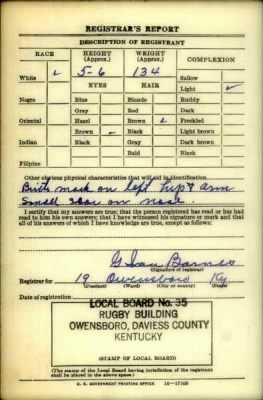 REGISTRAR'S REPORT
DESCRIPTION OF REGISTRANT
RACE HEIGHT (Approx.) WEIGHT (Approx.) COMPLEXION
White ✓ 5-6 134 Sallow
EYES HAIR Light ✓
Negro Blue Blonde Ruddy
Gray Red Dark
Oriental Hazel Brown ✓ Freckled
Brown ✓ Black Light brown
Indian Black Gray Dark brown
Bald Black
Filipino
Other obvious physical characteristics that will aid in identification
Birth mark on left hip & arm
Small scar on nose.
I certify that my answers are true; that the person registered has read or has had
read to him his own answers; that I have witnessed his signature or mark and that
all of his answers of which I have knowledge are true, except as follows:
Barnes
(Signature of registrar)
Registrar for 19 Owensboro Ky
(Precinct) (Ward) (City or county) (State)
Date of registration
LOCAL BOARD No. 35
RUGBY BUILDING
OWENSBORO, DAVIESS COUNTY
KENTUCKY
(STAMP OF LOCAL BOARD)
(The stamp of the Local Board having jurisdiction of the registrant
shall be placed in the above space.)
U. S. GOVERNMENT PRINTING OFFICE 16—17105